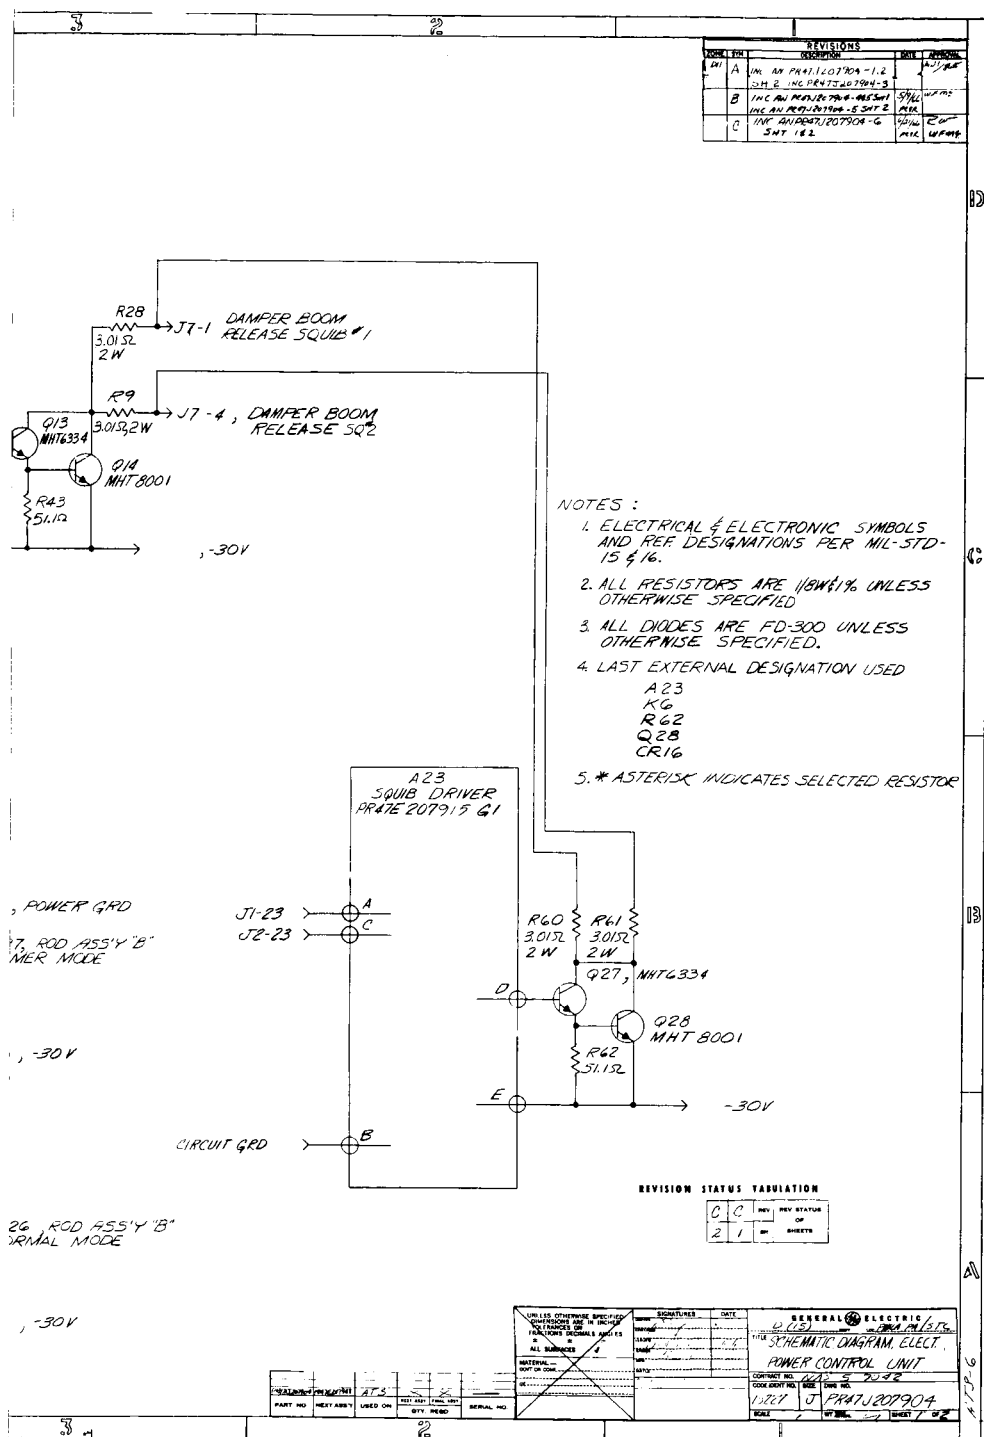 3
2
REVISIONS
ZONE SYM DESCRIPTION DATE APPROVAL
A INC AN PR47J207904-1,2
SH 2 INC PR47J207904-3
B
INC AN PR47J207904-5 SHT 2
C INC AN PR47J207904-6
SHT 1&2
D
R28
3.01Ω
2W
J7-1 DAMPER BOOM
RELEASE SQUIB #1
R9
3.01Ω, 2W
J7-4, DAMPER BOOM
RELEASE SQ2
Q13
MHT6334
Q14
MHT8001
R43
51.1Ω
, -30V
NOTES :
1. ELECTRICAL & ELECTRONIC SYMBOLS
AND REF. DESIGNATIONS PER MIL-STD-
15 & 16.
2. ALL RESISTORS ARE 1/8W & 1% UNLESS
OTHERWISE SPECIFIED
3. ALL DIODES ARE FD-300 UNLESS
OTHERWISE SPECIFIED.
4. LAST EXTERNAL DESIGNATION USED
A23
K6
R62
Q28
CR16
5. * ASTERISK INDICATES SELECTED RESISTOR
C
A23
SQUIB DRIVER
PR47E207915 G1
, POWER GRD
7, ROD ASS'Y "B"
MER MODE
J1-23 A
J2-23 C
R60
3.01Ω
2W
R61
3.01Ω
2W
B
Q27, MHT6334
D
Q28
MHT 8001
R62
51.1Ω
, -30V
E
-30V
CIRCUIT GRD B
REVISION STATUS TABULATION
C C REV REV STATUS
OF
2 1 SH SHEETS
26, ROD ASS'Y "B"
ORMAL MODE
A
, -30V
UNLESS OTHERWISE SPECIFIED
DIMENSIONS ARE IN INCHES
TOLERANCES ON
FRACTIONS DECIMALS ANGLES
ALL SURFACES
MATERIAL
SIGNATURES DATE
GENERAL ELECTRIC
TITLE SCHEMATIC DIAGRAM, ELECT.
POWER CONTROL UNIT
CONTRACT NO.
CODE IDENT NO. SIZE DWG NO.
J PR47J207904
SCALE SHEET 1 OF 2
ATS
PART NO NEXT ASSY USED ON QTY REQD SERIAL NO.
3
2